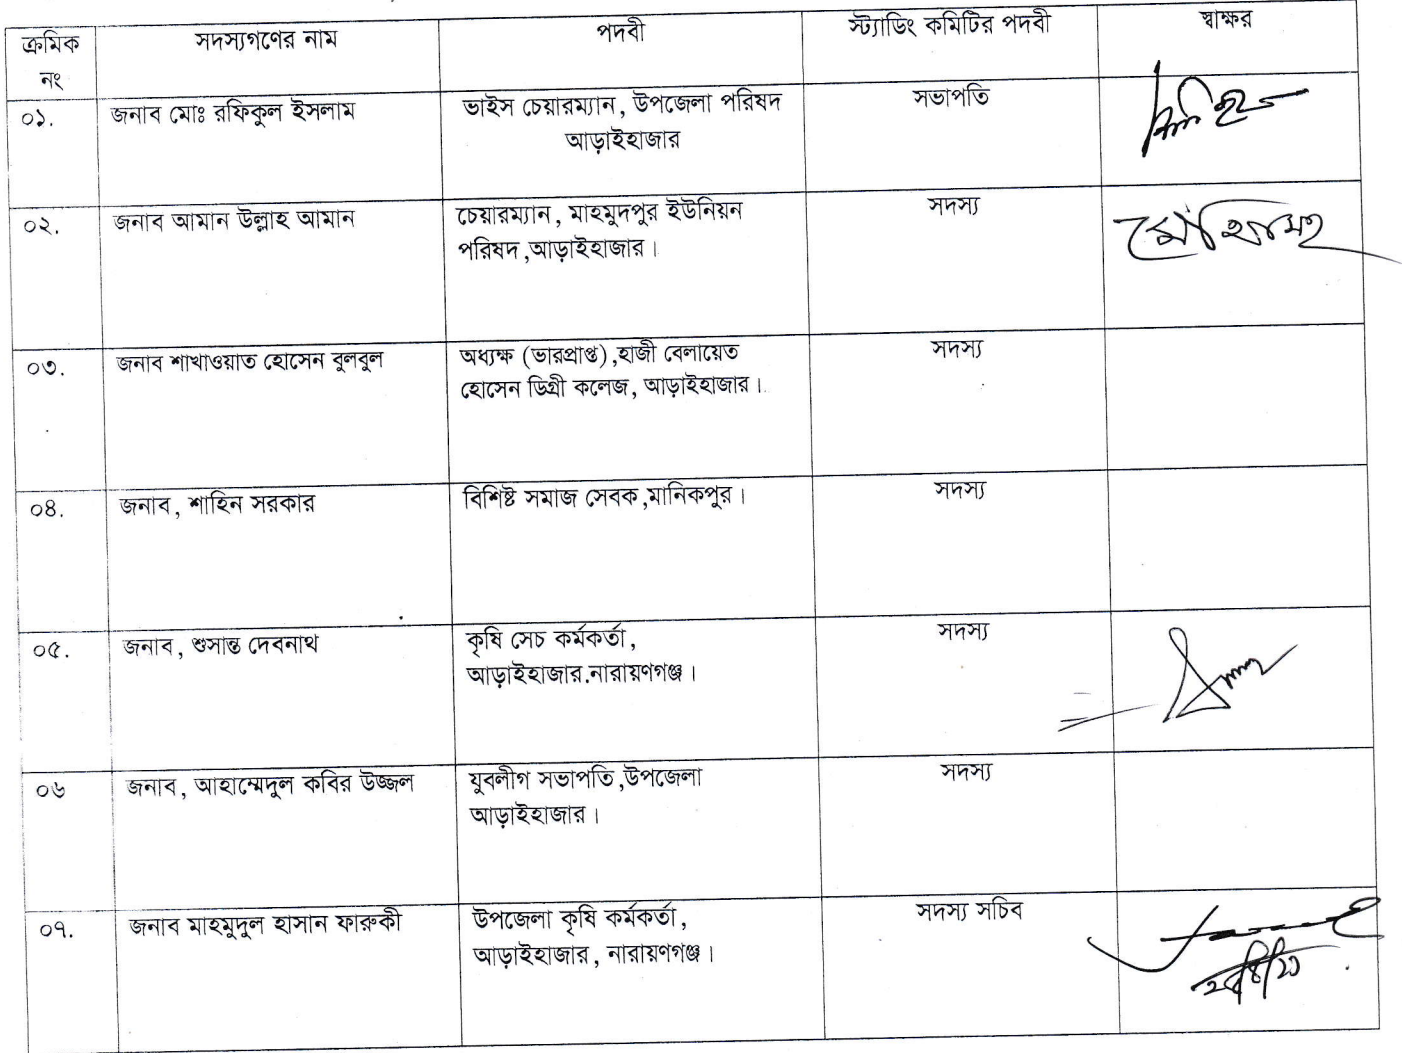 ক্রমিক নং সদস্যগণের নাম পদবী স্ট্যাডিং কমিটির পদবী স্বাক্ষর
০১. জনাব মোঃ রফিকুল ইসলাম ভাইস চেয়ারম্যান, উপজেলা পরিষদ সভাপতি
আড়াইহাজার
০২. জনাব আমান উল্লাহ আমান চেয়ারম্যান, মাহমুদপুর ইউনিয়ন সদস্য
পরিষদ,আড়াইহাজার।
০৩. জনাব শাখাওয়াত হোসেন বুলবুল অধ্যক্ষ (ভারপ্রাপ্ত),হাজী বেলায়েত সদস্য
হোসেন ডিগ্রী কলেজ, আড়াইহাজার।
০৪. জনাব, শাহিন সরকার বিশিষ্ট সমাজ সেবক,মানিকপুর। সদস্য
০৫. জনাব, শুসান্ত দেবনাথ কৃষি সেচ কর্মকর্তা, সদস্য
আড়াইহাজার.নারায়ণগঞ্জ।
০৬ জনাব, আহাম্মেদুল কবির উজ্জল যুবলীগ সভাপতি,উপজেলা সদস্য
আড়াইহাজার।
০৭. জনাব মাহমুদুল হাসান ফারুকী উপজেলা কৃষি কর্মকর্তা, সদস্য সচিব
আড়াইহাজার, নারায়ণগঞ্জ।